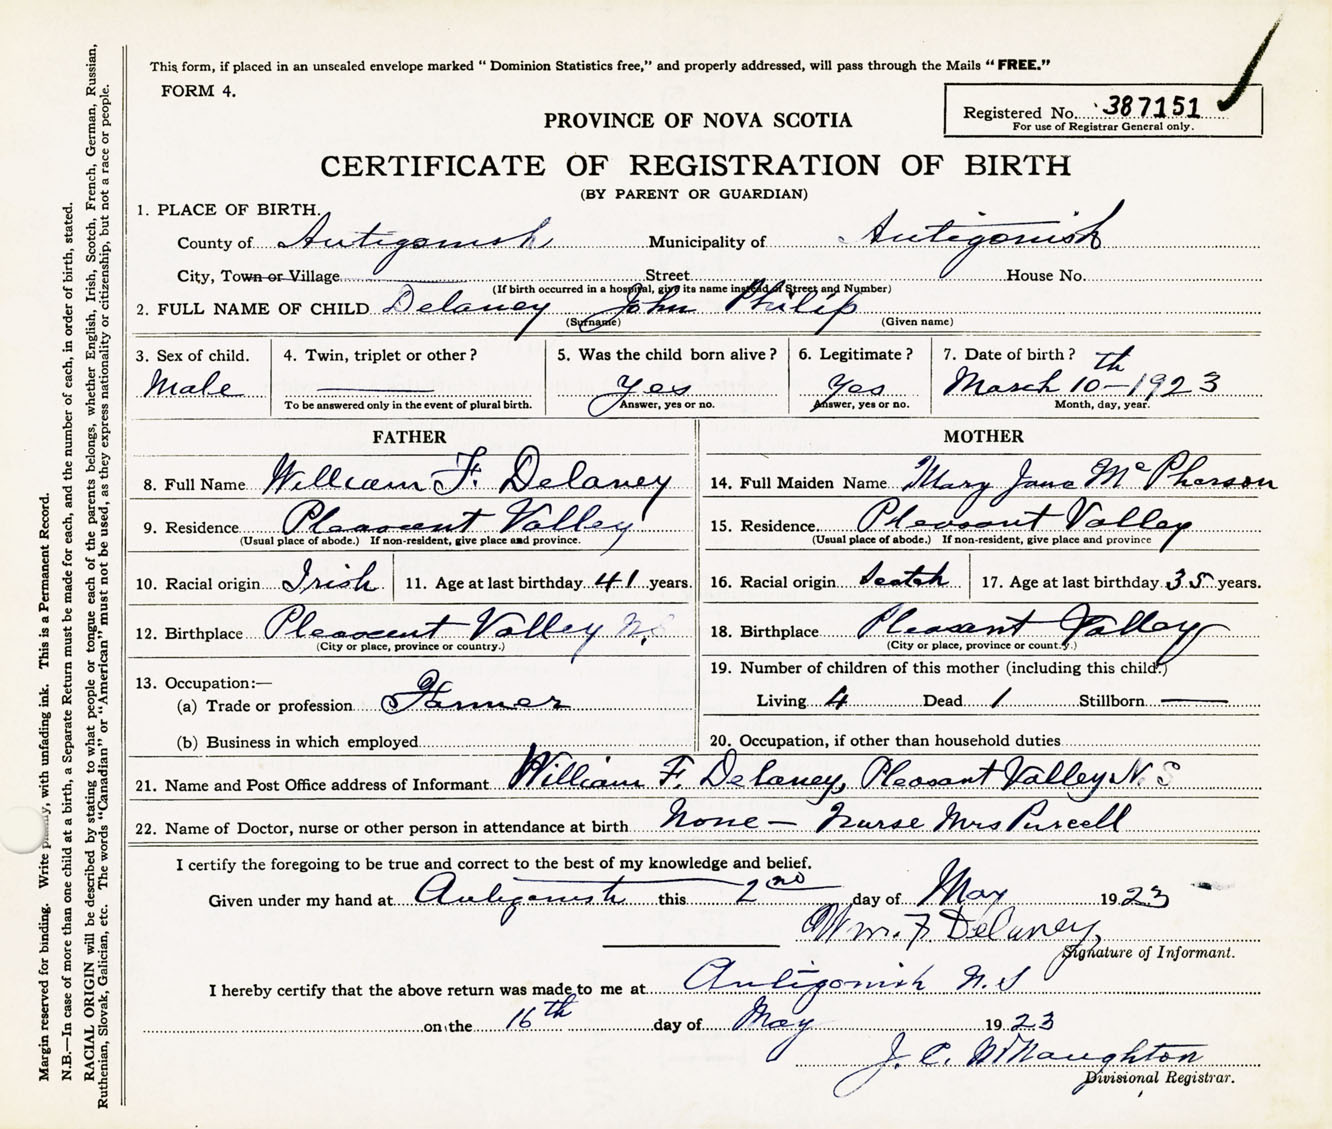 This form, if placed in an unsealed envelope marked "Dominion Statistics free," and properly addressed, will pass through the Mails "FREE."
FORM 4.
Registered No. 387151
For use of Registrar General only.
PROVINCE OF NOVA SCOTIA
CERTIFICATE OF REGISTRATION OF BIRTH
(BY PARENT OR GUARDIAN)
1. PLACE OF BIRTH.
County of Antigonish Municipality of Antigonish
City, Town or Village Street House No.
(If birth occurred in a hospital, give its name instead of Street and Number)
2. FULL NAME OF CHILD Delaney John Philip
(Surname) (Given name)
3. Sex of child. 4. Twin, triplet or other? 5. Was the child born alive? 6. Legitimate? 7. Date of birth?
Male — Yes Yes March 10th–1923
To be answered only in the event of plural birth. Answer, yes or no. Answer, yes or no. Month, day, year.
FATHER MOTHER
8. Full Name William F. Delaney 14. Full Maiden Name Mary Jane McPherson
9. Residence Pleascent Valley 15. Residence. Pleasant Valley
(Usual place of abode.) If non-resident, give place and province. (Usual place of abode.) If non-resident, give place and province
10. Racial origin Irish 11. Age at last birthday 41 years. 16. Racial origin Scotch 17. Age at last birthday 35 years.
12. Birthplace Pleascent Valley N.S 18. Birthplace Pleasant Valley
(City or place, province or country.) (City or place, province or country.)
13. Occupation:— 19. Number of children of this mother (including this child.)
(a) Trade or profession Farmer Living 4 Dead 1 Stillborn —
(b) Business in which employed 20. Occupation, if other than household duties
21. Name and Post Office address of Informant William F. Delaney, Pleasant Valley N. S
22. Name of Doctor, nurse or other person in attendance at birth None — Nurse Mrs Purcell
I certify the foregoing to be true and correct to the best of my knowledge and belief.
Given under my hand at Antigonish this 2nd day of May 1923
Wm. F. Delaney,
Signature of Informant.
I hereby certify that the above return was made to me at Antigonish N. S
on the 16th day of May 1923
J. C. McNaughton
Divisional Registrar.
Margin reserved for binding. Write plainly, with unfading ink. This is a Permanent Record.
N.B.—In case of more than one child at a birth, a Separate Return must be made for each, and the number of each, in order of birth, stated.
RACIAL ORIGIN will be described by stating to what people or tongue each of the parents belongs, whether English, Irish, Scotch, French, German, Russian,
Ruthenian, Slovak, Galician, etc. The words "Canadian" or "American" must not be used, as they express nationality or citizenship, but not a race or people.